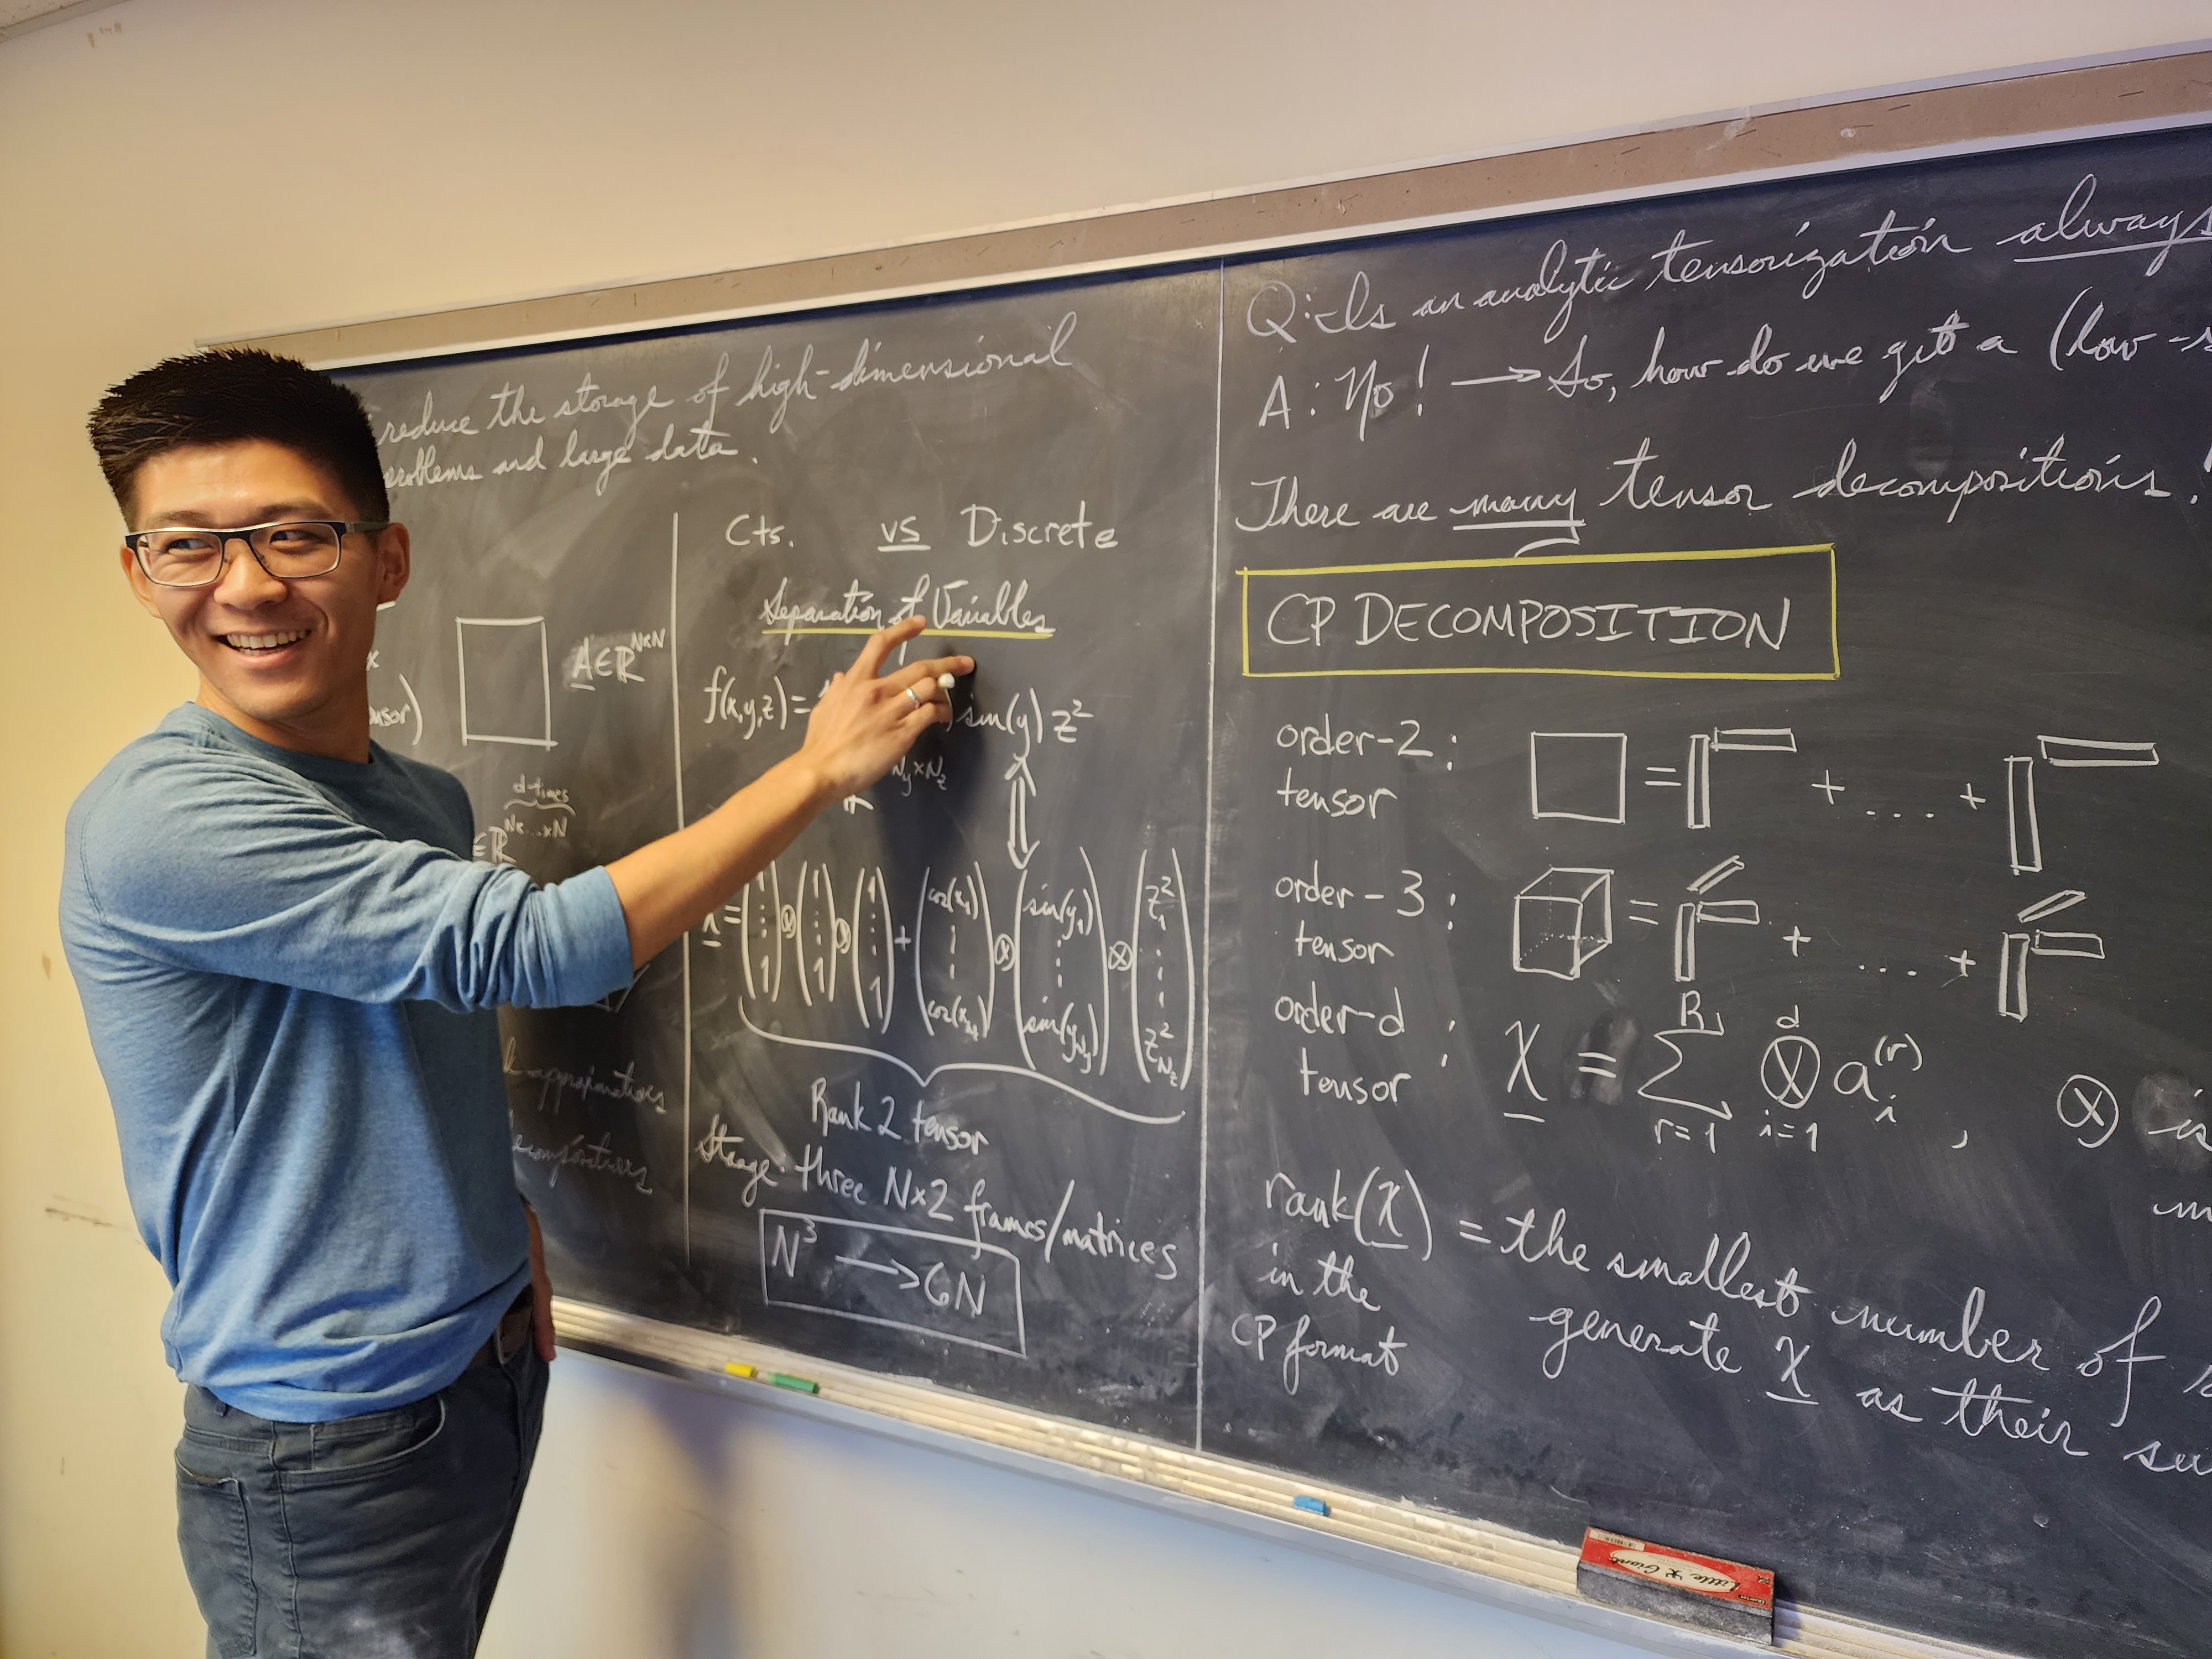 reduce the storage of high-dimensional
problems and large data.
A∈ℝ^{N×N}
d-times
∈ℝ^{N×...×N}
Cts. vs Discrete
Separation of Variables
f(x,y,z)= sin(y) z²
N_y×N_z
= (1 ⋮ 1) ⊗ (1 ⋮ 1) ⊗ (1 ⋮ 1) + (cos(x₁) ⋮ cos(x_{N_x})) ⊗ (sin(y₁) ⋮ sin(y_{N_y})) ⊗ (z₁² ⋮ z²_{N_z})
Rank 2 tensor
Storage: three N×2 frames/matrices
N³ → 6N
Q: Is an analytic tensorization always
A: No! → So, how do we get a (low-
There are many tensor decompositions!
CP DECOMPOSITION
order-2 : = + .... +
tensor
order-3 : = + .... +
tensor
order-d : X = ∑_{r=1}^{R} ⊗_{i=1}^{d} a_i^{(r)} , ⊗ is
tensor
rank(X) = the smallest number of
in the generate X as their
CP format
Little Giant